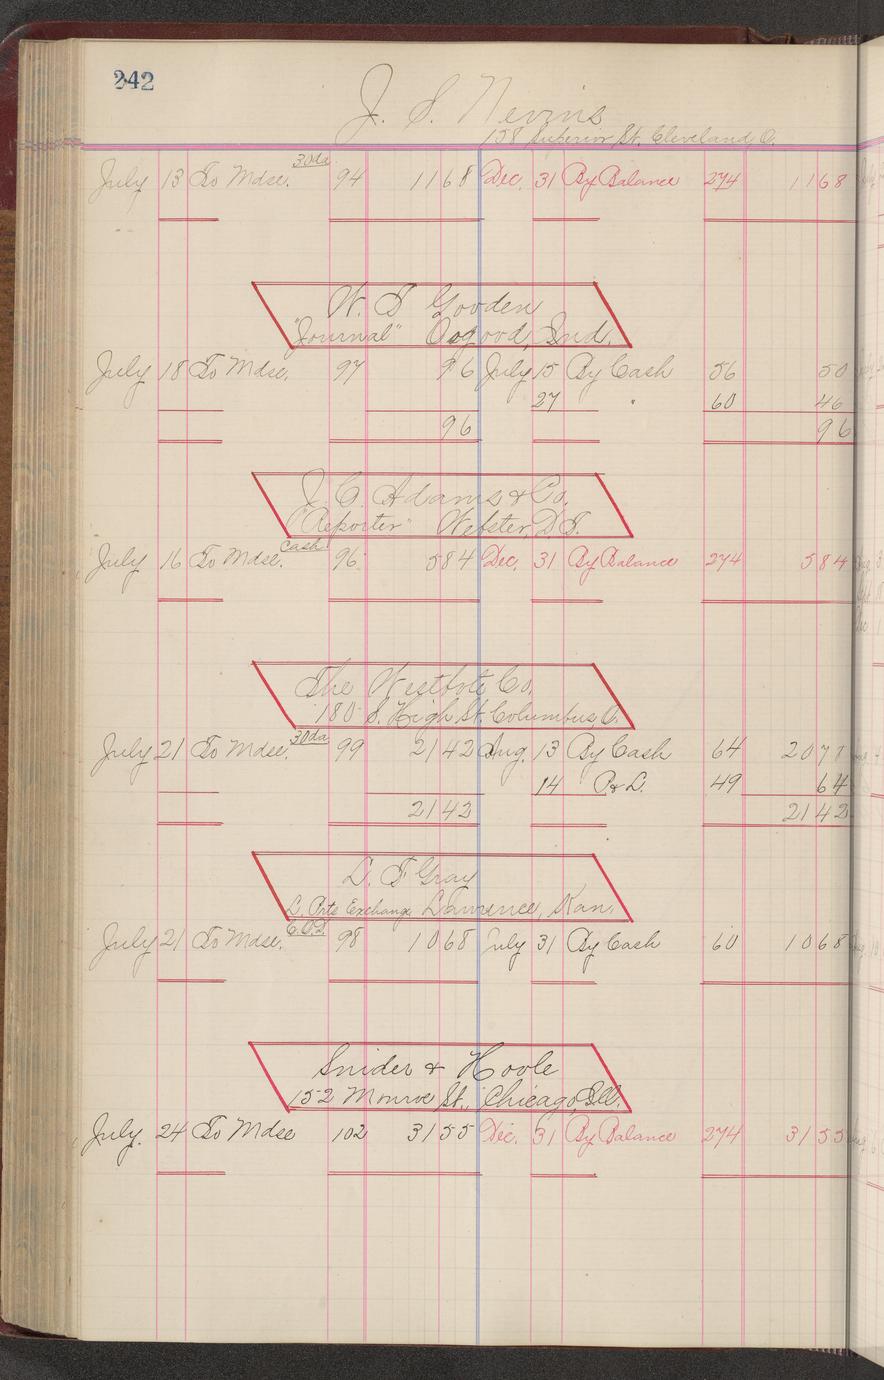 242
J. S. Nevins
158 Superior St. Cleveland, O.
July 13 To Mdse. 30da 94 11 68 Dec. 31 By Balance 274 11 68
W. T. Gooden
"Journal" Osgood, Ind.
July 18 To Mdse. 97 96 July 15 By Cash 56 50
27 " 60 46
96 96
J. C. Adams & Co.
"Reporter" Webster, D.T.
July 16 To Mdse. Cash 96 5 84 Dec. 31 By Balance 274 5 84
The Westbote Co.
180 S. High St. Columbus, O.
July 21 To Mdse. 30da 99 21 42 Aug. 13 By Cash 64 20 78
14 P & L. 49 64
21 42 21 42
L. T. Gray
L. Prtg Exchange Lawrence, Kan.
July 21 To Mdse. C.O.D. 98 10 68 July 31 By Cash 60 10 68
Snider & Hoole
152 Monroe St., Chicago, Ill.
July. 24 To Mdse 102 31 55 Dec. 31 By Balance 274 31 55